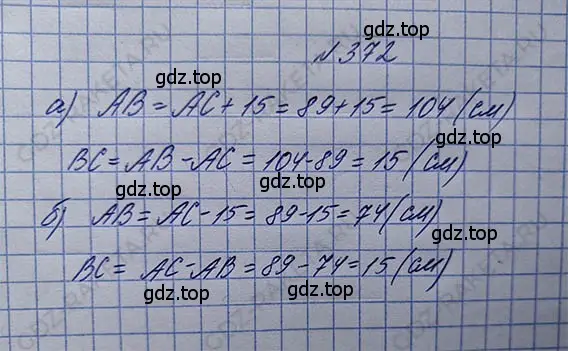 №372
gdz.top
а) AB = AC + 15 = 89 + 15 = 104 (см)
gdz.top
BC = AB - AC = 104 - 89 = 15 (см)
gdz.top gdz.top
б) AB = AC - 15 = 89 - 15 = 74 (см)
gdz.top
BC = AC - AB = 89 - 74 = 15 (см)
gdz.top gdz.top